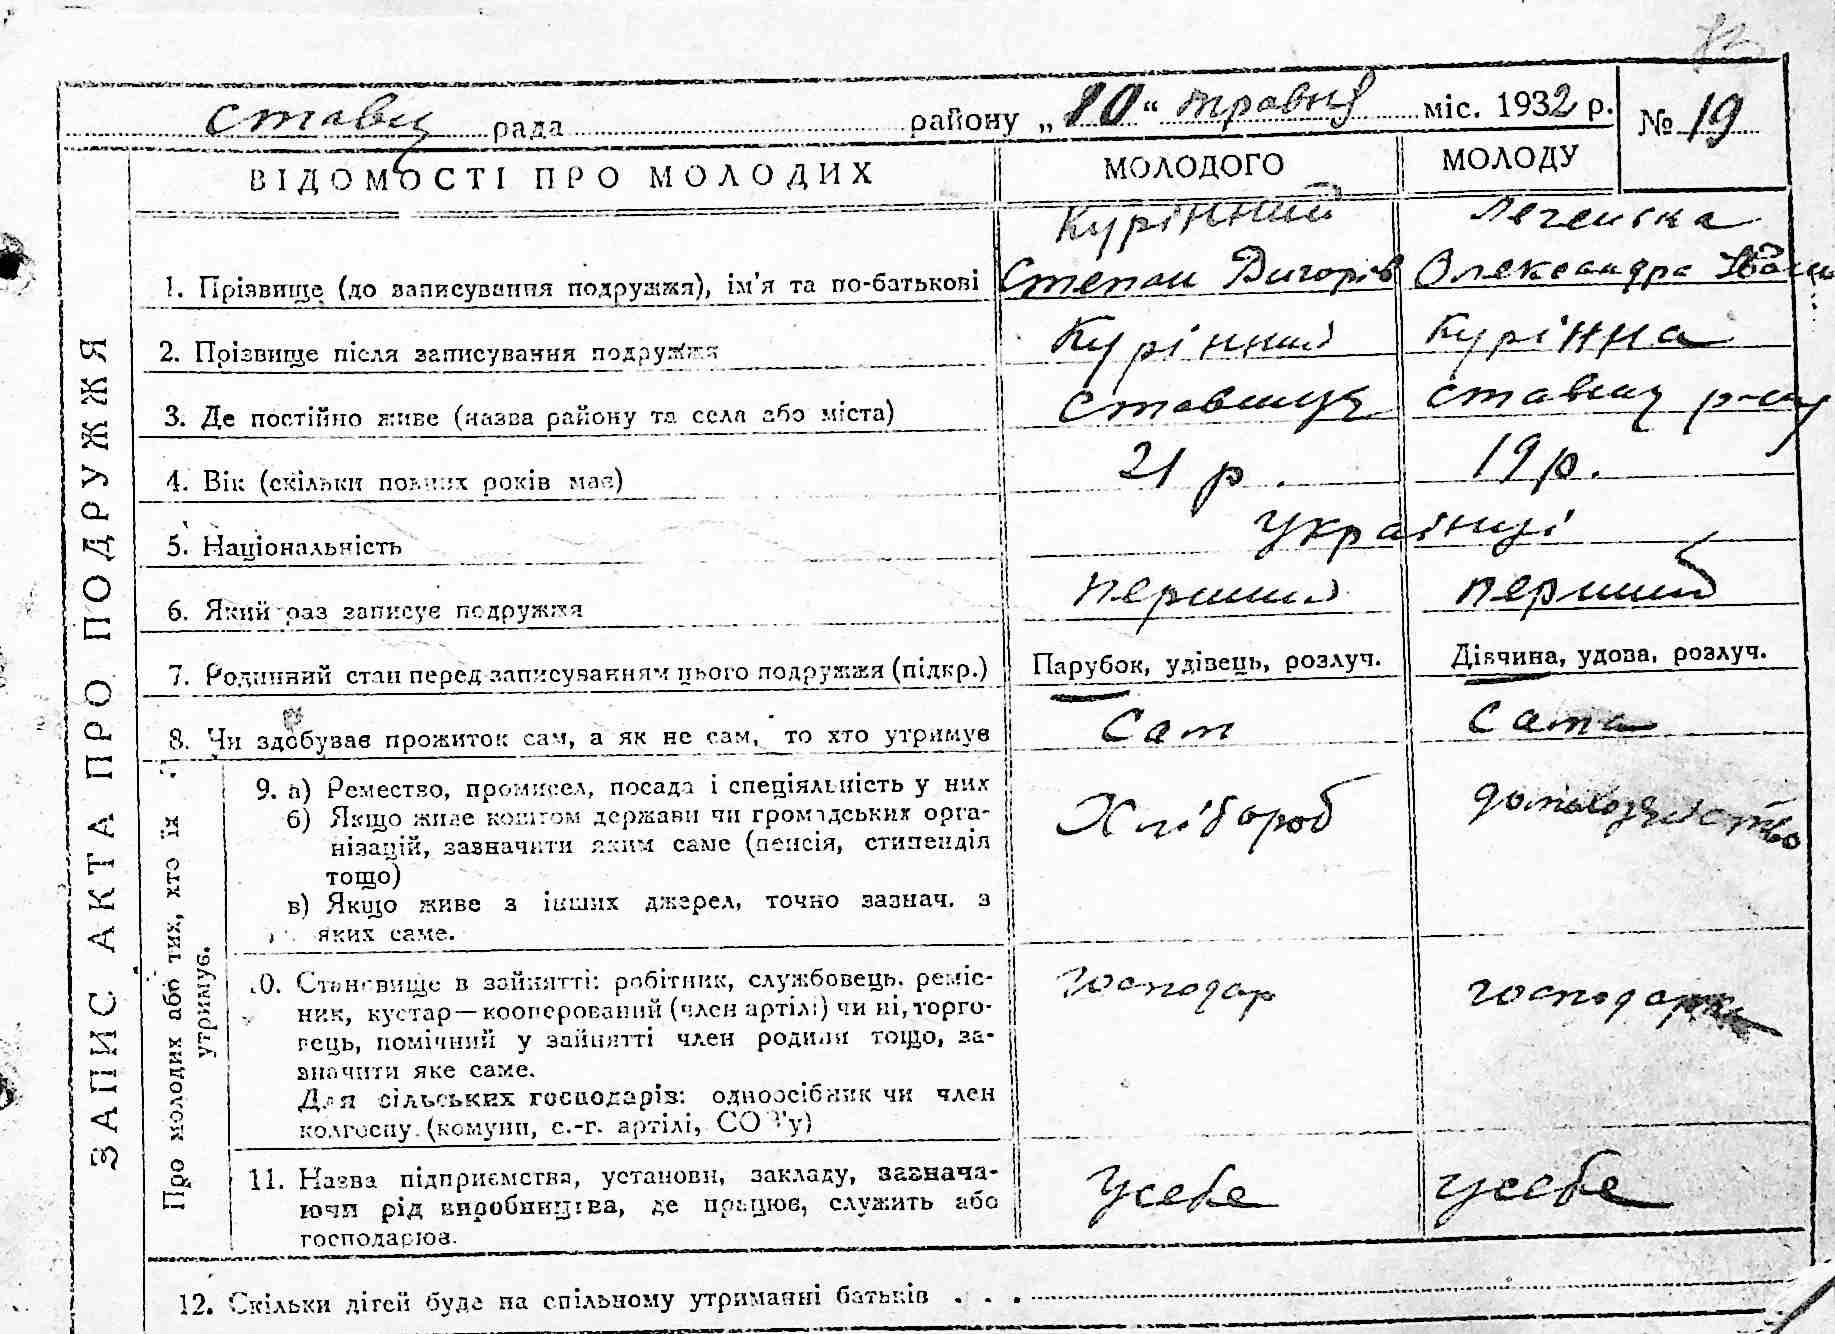 рада району „10“ травня міс. 1932 р. № 19
ВІДОМОСТІ ПРО МОЛОДИХ МОЛОДОГО МОЛОДУ
Курінний
1. Прізвище (до записування подружжя), ім'я та по-батькові Степан Григорів Олександра Іван
2. Прізвище після записування подружжя Курінний Курінна
3. Де постійно живе (назва району та села або міста)
4. Вік (скільки повних років має) 21 р. 19 р.
5. Національність українці
6. Який раз записує подружжя перший перший
7. Родинний стан перед записуванням цього подружжя (підкр.) Парубок, удівець, розлуч. Дівчина, удова, розлуч.
8. Чи здобуває прожиток сам, а як не сам, то хто утримує Сам Сама
9. а) Ремество, промисел, посада і спеціяльність у них
б) Якщо живе коштом держави чи громадських орга-
нізацій, зазначити яким саме (пенсія, стипендія
тощо)
в) Якщо живе з інших джерел, точно зазнач. з
яких саме.
Хлібороб
домохозяйство
10. Становище в зайнятті: робітник, службовець, реміс-
ник, кустар—кооперований (член артілі) чи ні, торго-
вець, помічний у зайнятті член родини тощо, за-
значити яке саме.
Для сільських господарів: одноосібник чи член
колгоспу (комуни, с.-г. артілі, СОЗ'у)
господар
господарка
11. Назва підприємства, установи, закладу, зазнача-
ючи рід виробництва, де працює, служить або
господарює.
усебе
усебе
12. Скільки дітей буде на спільному утриманні батьків . . .
ЗАПИС АКТА ПРО ПОДРУЖЖЯ
Про молодих або тих, хто їх
утримує.